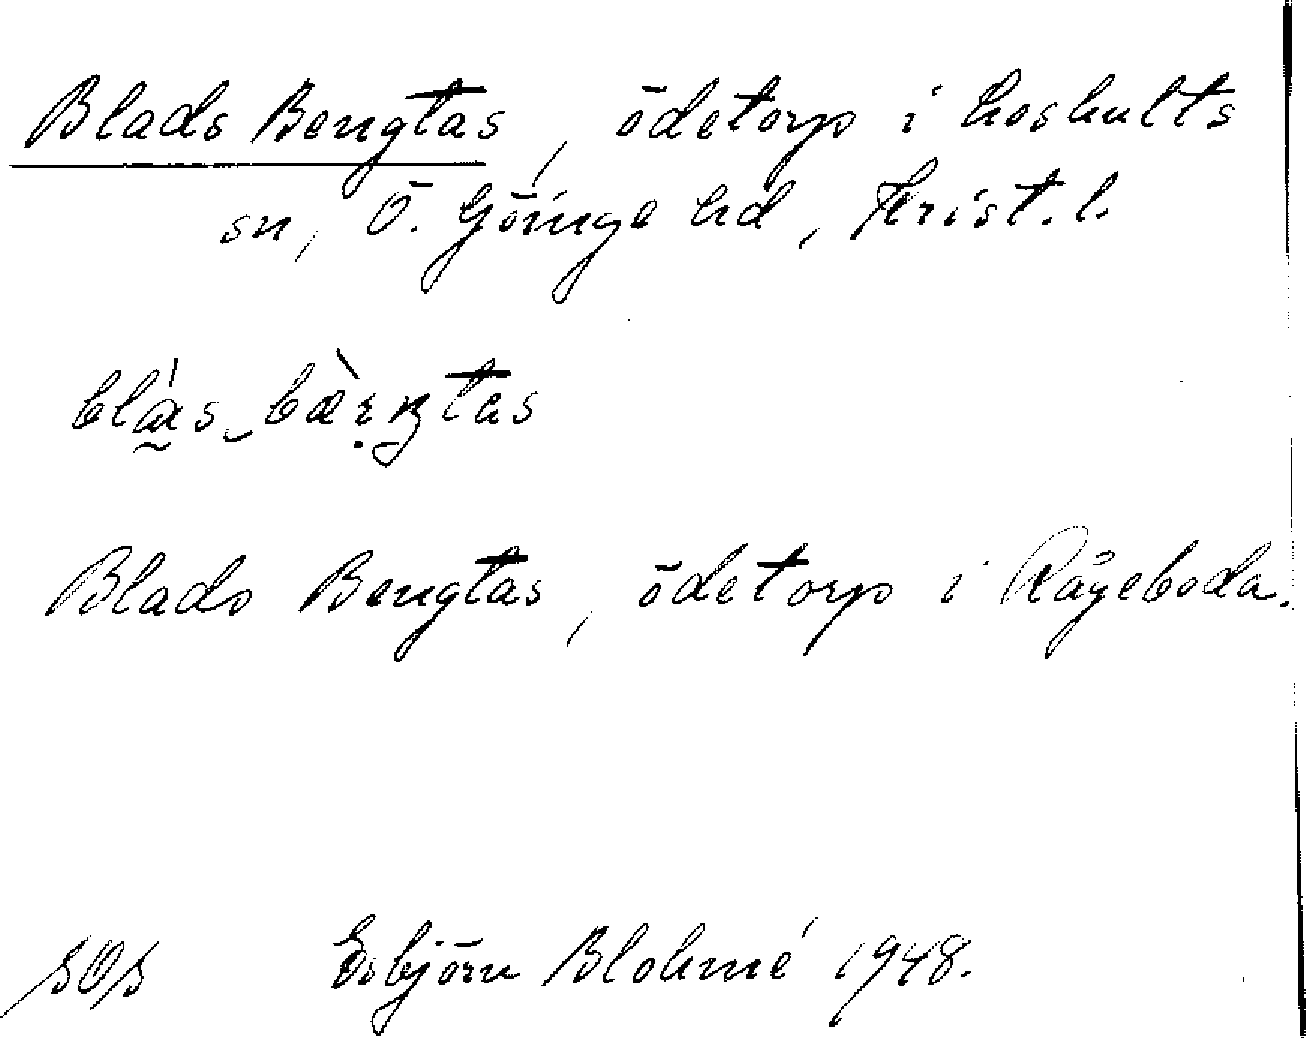 Blads Bengtas, ödetorp i Loshults
sn, Ö. Göinge hd, Krist. l.
Blads Bengtas, ödetorp i Rågeboda.
SOS Esbjörn Blohmé 1948.